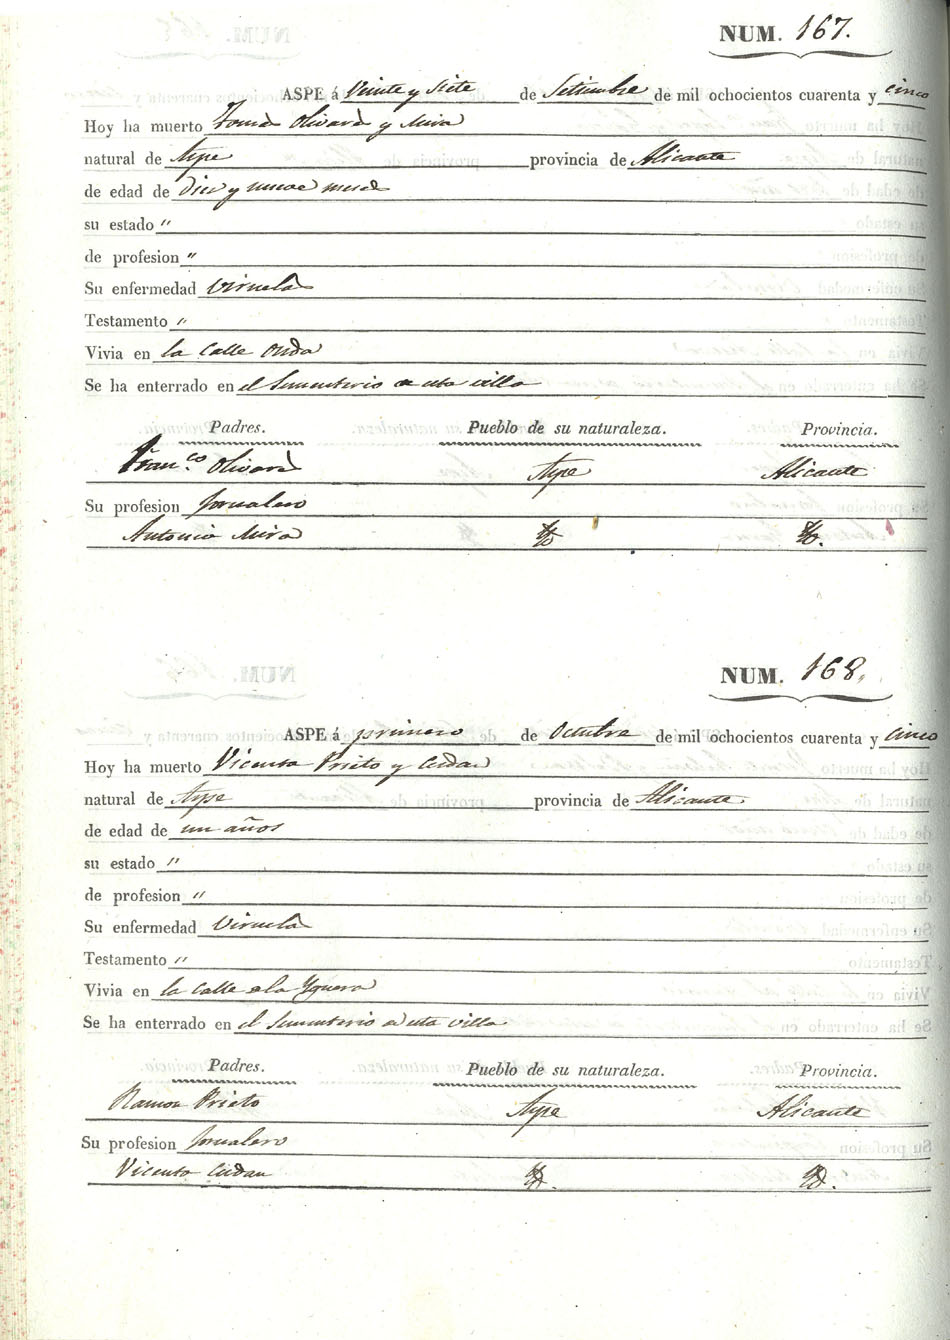 NUM. 167.
ASPE á Veinte y Siete de Setiembre de mil ochocientos cuarenta y cinco
Hoy ha muerto Tomás Olivares y Mira
natural de Aspe provincia de Alicante
de edad de Diez y nueve meses
su estado "
de profesion "
Su enfermedad Viruelas
Testamento "
Vivia en la Calle Onda
Se ha enterrado en el Sumenterio de esta villa
Padres. Pueblo de su naturaleza. Provincia.
Fran.co Olivares Aspe Alicante
Su profesion Jornalero
Antonia Mira
NUM. 168.
ASPE á primero de Octubre de mil ochocientos cuarenta y cinco
Hoy ha muerto Vicenta Prieto y Cerdan
natural de Aspe provincia de Alicante
de edad de un años
su estado "
de profesion "
Su enfermedad Viruelas
Testamento "
Vivia en la Calle de la Yguera
Se ha enterrado en el Sumenterio de esta villa
Padres. Pueblo de su naturaleza. Provincia.
Ramon Prieto Aspe Alicante
Su profesion Jornalero
Vicenta Cerdan